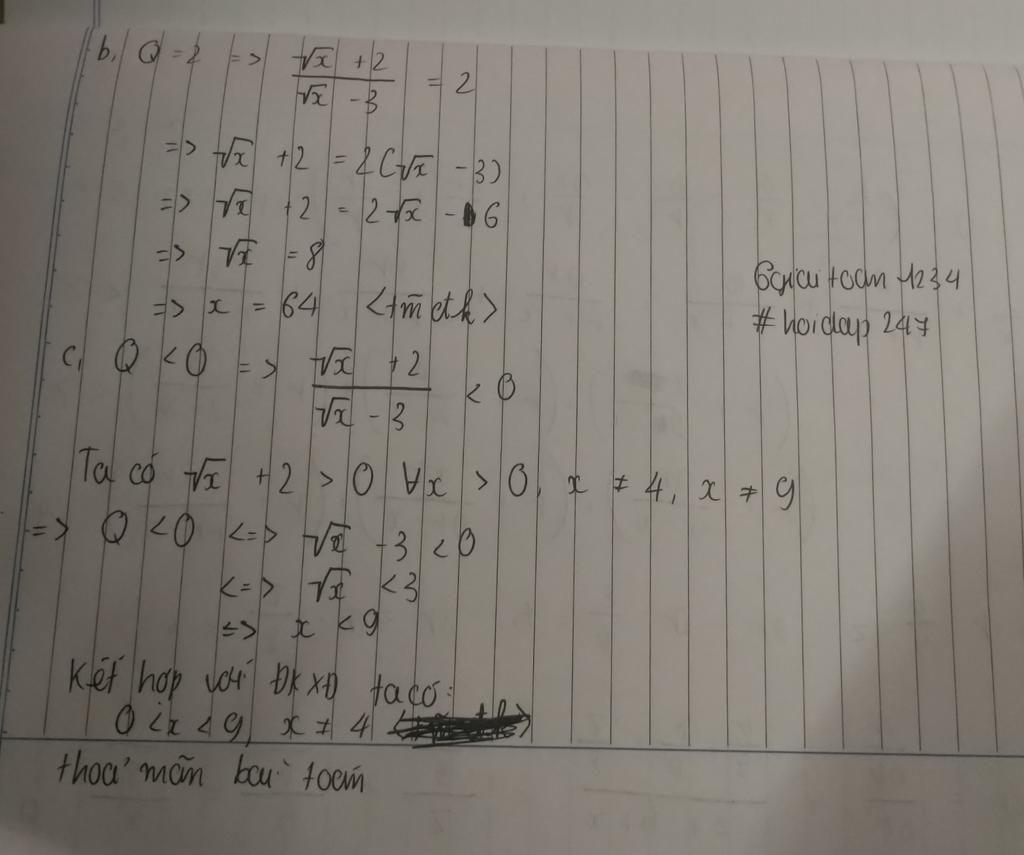 b, Q = 2 => (√x + 2)/(√x - 3) = 2
=> √x + 2 = 2(√x - 3)
=> √x + 2 = 2√x - 6
=> √x = 8
=> x = 64 <tm đk>
toán 1234
# hoidap 247
c, Q < 0 => (√x + 2)/(√x - 3) < 0
Ta có √x + 2 > 0 ∀x > 0, x ≠ 4, x ≠ 9
=> Q < 0 <=> √x - 3 < 0
<=> √x < 3
<=> x < 9
Kết hợp với ĐKXĐ ta có:
0 < x < 9, x ≠ 4
thoả mãn bài toán